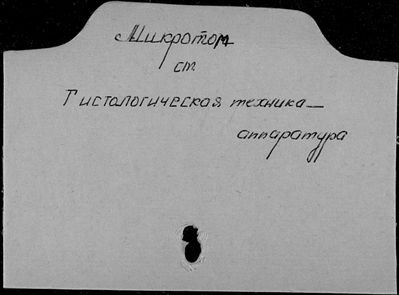 Микротом
ст
Гистологическая техника —
аппаратура